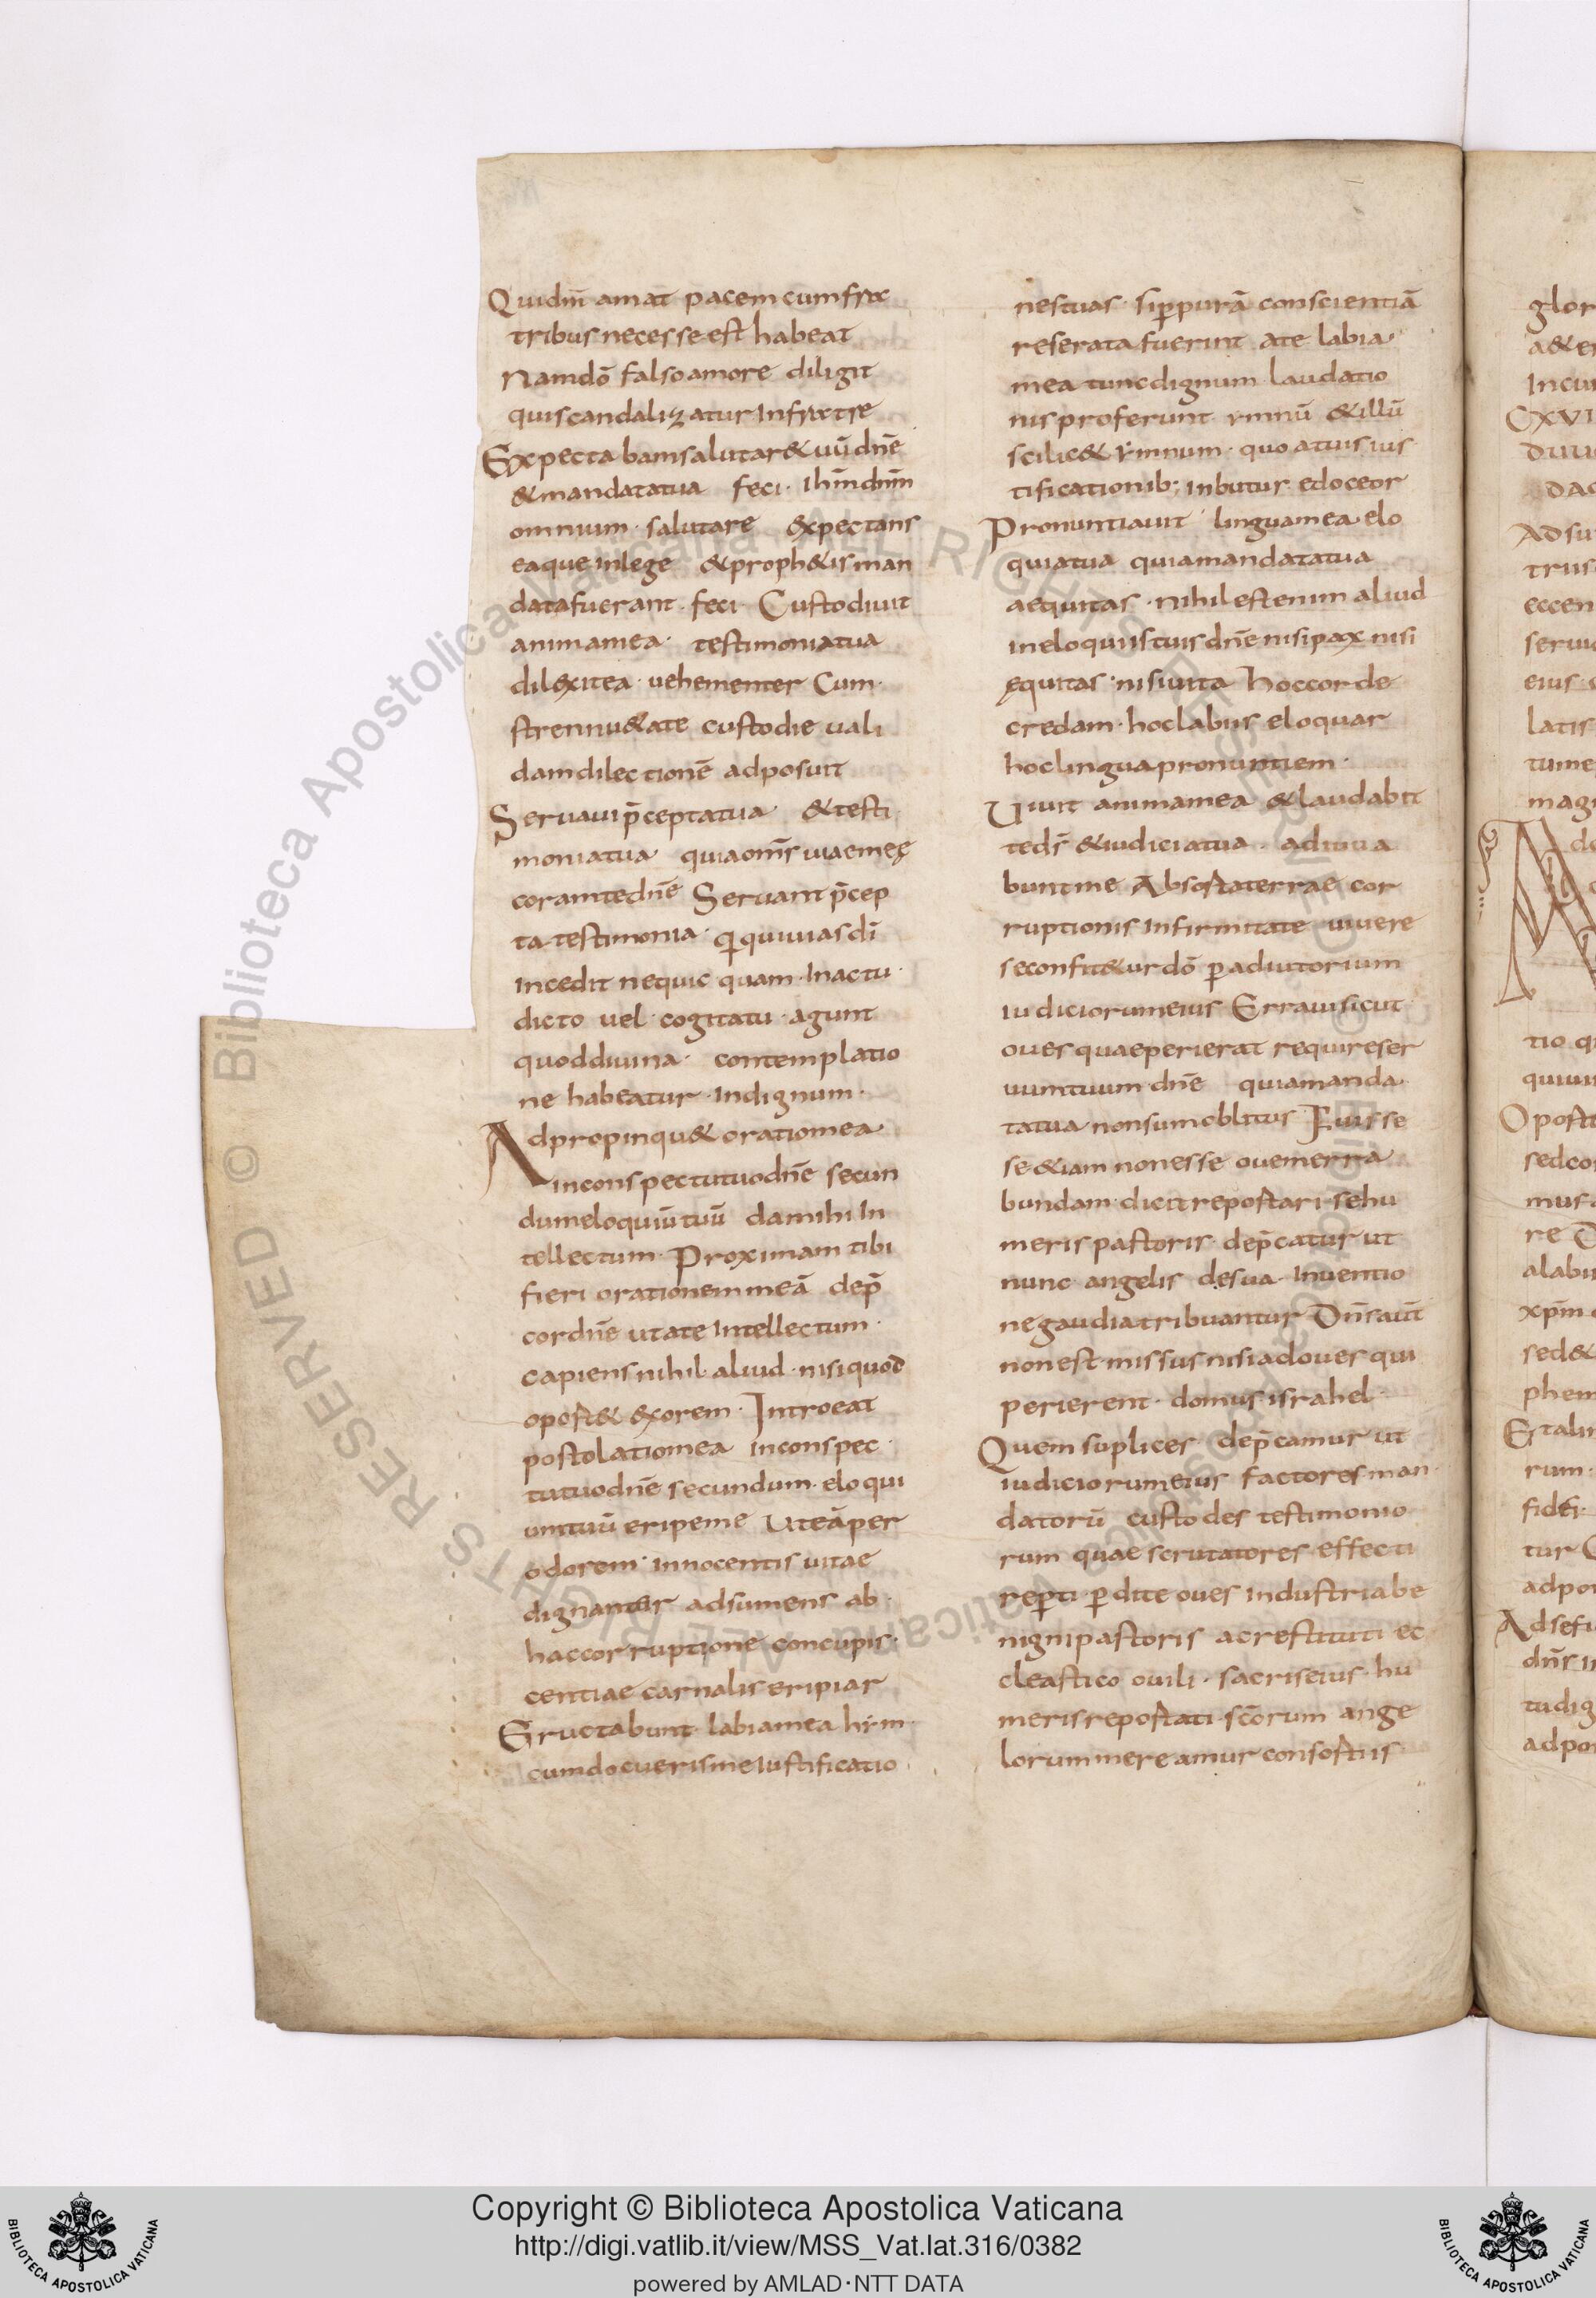 Quidm̄ amat pacem cum fra
tribus necesse est habeat
Nam dō falso amore diligit
qui scandalizatur In fratre
Expectabam salutare & uū dn̄e
& mandata tua feci · Ihm̄ dn̄m
omnium · salutare expectans
ea que in lege & proph&is man
data fuerant · feci · Custodiuit
anima mea · testimonia tua
dilexit ea · uehementer Cum ·
strennu&ate custodie uali
dam dilectionē adposuit
Seruaui p̄cepta tua · & testi
monia tua quia om̄s uiae meę
coram te dn̄e Seruant p̄cep
ta testimonia · qui qui uias dī
incedit nequic quam · In actu ·
dicto uel · cogitatu · agunt
quod diuina · contemplatio
ne habeatur · Indignum ·
Adpropinqu& oratio mea
in conspectu tuo dn̄e secun
dum eloquiū tuū da mihi In
tellectum · Proximam tibi
fieri orationem meā dep̄
cor dn̄e ut a te Intellectum ·
capiens nihil aliud · nisi quod
oport& exorem · Introeat
postolatio mea in conspec ·
tu tuo dn̄e secundum · eloqui
um tuū eripe me Ut eā per
odorem · innocentis uitae
dignanter adsumens ab ·
hac corruptione concupis ·
centiae carnalis eripiar
Eructabunt · labia mea hym ·
cum docueris me Iustificatio
nes tuas · si p purā conscientiā
reserata fuerint a te labia ·
mea tunc dignum laudatio
nis proferunt ymnū & illū
scilic& ymnum · quo a tuis ius
tificationib; inbutur edoceor
Pronuntiauit lingua mea elo
quia tua quia mandata tua
aequitas · nihil est enim aliud
in eloquiis tuis dn̄e nisi pax nisi
ęquitas · nisi uita hoc corde
credam · hoc labiis eloquar
hoc lingua pronuntiem ·
Uiuit anima mea & laudabit
te ds̄ & iudicia tua · adiuua
bunt me Absq; ista terrae cor
ruptionis infirmitate uiuere
se confit&ur dō p adiutorium
iudiciorum eius Erraui sicut
oues quae perierat require ser
uum tuum dn̄e quia manda
ta tua non sum oblitus Fuisse
se &iam non esse ouem erra
bundam · dicit repostari se hu
meris pastoris · dep̄catur ut
nunc angelis de sua Inuentio
ne gaudia tribuantur Dn̄s aut̄
non est missus nisi ad oues qui
perierent · domus israhel ·
Quem suplices · dep̄camur ut
iudiciorum eius factores man ·
datorū custodes testimonio
rum quae scrutatores effecti
rep̱ti p dite oues industria be
nigni pastoris ac restituti ec
cleastico ouili · sacris eius · hu
meris repostati · sc̄orum ange
lorum mereamur consortiis
Copyright © Biblioteca Apostolica Vaticana
http://digi.vatlib.it/view/MSS_Vat.lat.316/0382
powered by AMLAD·NTT DATA